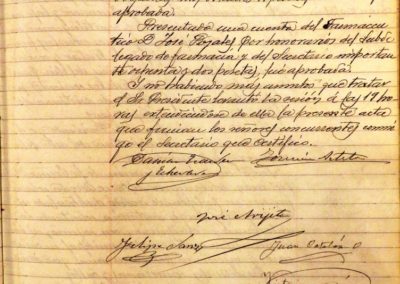 aprobada.
Presentada una cuenta del Farmaceu-
tico D. José por honorarios del Subde-
legado de farmacia y del Secretario importan-
te ochenta y dos pesetas, fué aprobada.
Y no habiendo mas asuntos que tratar
el Sr. Presidente levantó la sesión á las 19 ho-
ras extendiendose de ella la presente acta
que firman los señores concurrentes conmi-
go el Secretario que certifico.
José
Felipe Sanz
Juan Catalán